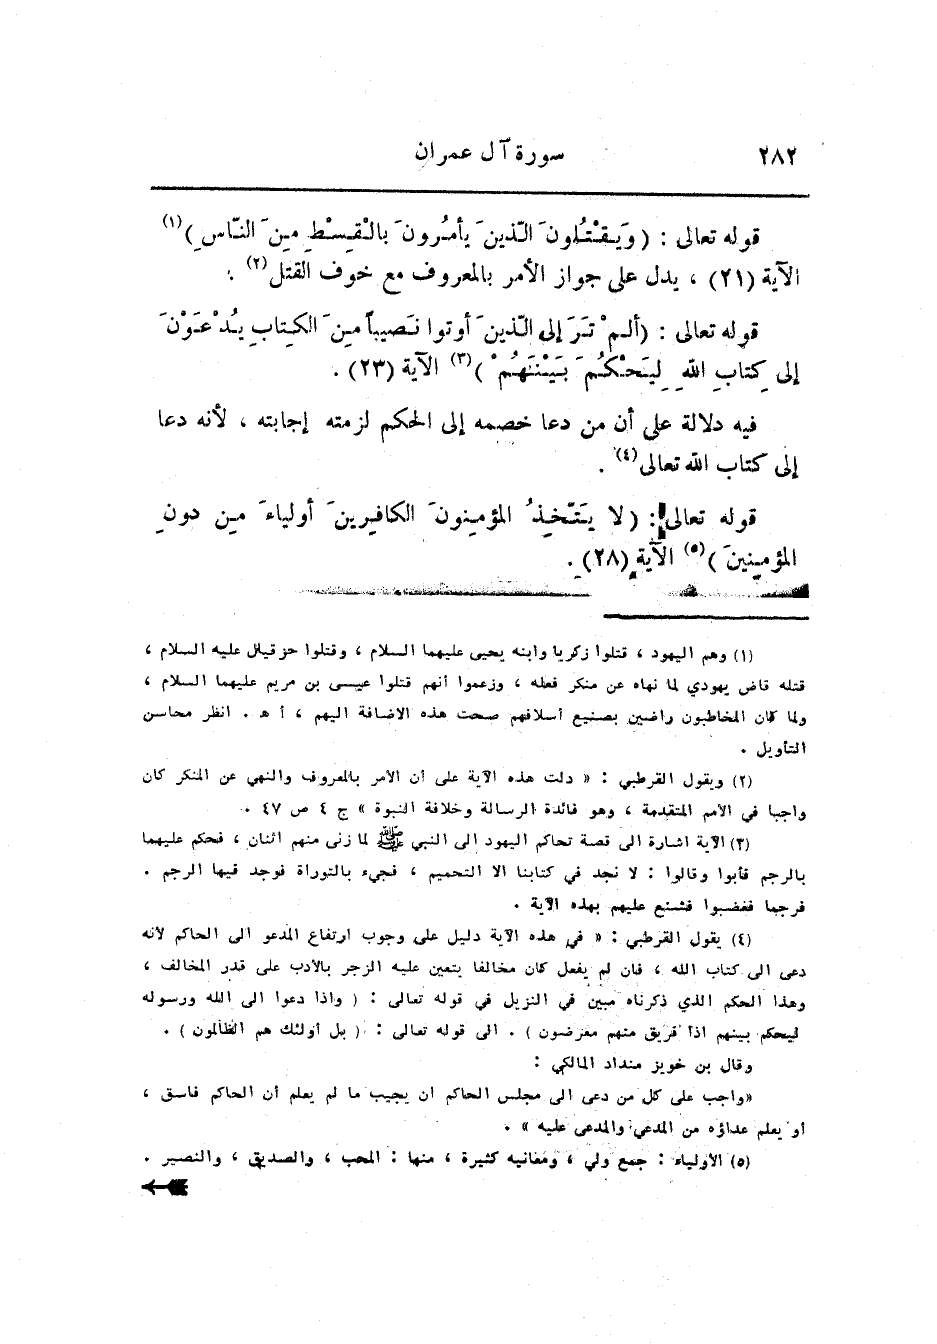 ٢٨٢ سورة آل عمران
قوله تعالى : ( وَيَقْتُلُونَ الّذينَ يأمُرونَ بالْقِسْطِ مِنَ النّاسِ )(١)
الآية (٢١) ، يدل على جواز الأمر بالمعروف مع خوف القتل(٢) .
قوله تعالى : (ألمْ تَرَ إلى الّذينَ أوتوا نَصيباً مِنَ الكِتابِ يُدْعَوْنَ
إلى كِتابِ اللّهِ لِيَحْكُمَ بَيْنَهُمْ )(٣) الآية (٢٣) .
فيه دلالة على أن من دعا خصمه إلى الحكم لزمته إجابته ، لأنه دعا
إلى كتاب اللّه تعالى(٤) .
قوله تعالى : ( لا يَتّخِذُ المؤمِنونَ الكافِرينَ أولياءَ مِن دونِ
المؤمِنينَ )(٥) الآية (٢٨) .
(١) وهم اليهود ، قتلوا زكريا وابنه يحيى عليهما السلام ، وقتلوا حزقيال عليه السلام ،
قتله قاض يهودي لما نهاه عن منكر فعله ، وزعموا أنهم قتلوا عيسى بن مريم عليهما السلام ،
ولما كان المخاطبون راضين بصنيع أسلافهم صحت هذه الاضافة اليهم ، أ هـ . انظر محاسن
التأويل .
(٢) ويقول القرطبي : « دلت هذه الآية على أن الأمر بالمعروف والنهي عن المنكر كان
واجبا في الأمم المتقدمة ، وهو فائدة الرسالة وخلافة النبوة » ج ٤ ص ٤٧ .
(٣) الآية اشارة الى قصة تحاكم اليهود الى النبي ﷺ لما زنى منهم اثنان ، فحكم عليهما
بالرجم فأبوا وقالوا : لا نجد في كتابنا الا التحميم ، فجيء بالتوراة فوجد فيها الرجم .
فرجما فغضبوا فشنع عليهم بهذه الآية .
(٤) يقول القرطبي : « في هذه الآية دليل على وجوب ارتفاع المدعو الى الحاكم لأنه
دعى الى كتاب الله ، فان لم يفعل كان مخالفا يتعين عليه الزجر بالأدب على قدر المخالف ،
وهذا الحكم الذي ذكرناه مبين في النزيل في قوله تعالى : ( واذا دعوا الى الله ورسوله
ليحكم بينهم اذا فريق منهم معرضون ) . الى قوله تعالى : ( بل أولئك هم الظالمون ) .
وقال بن خويز منداد المالكي :
«واجب على كل من دعى الى مجلس الحاكم أن يجيب ما لم يعلم أن الحاكم فاسق ،
أو يعلم عداؤه من المدعي والمدعى عليه » .
(٥) الأولياء : جمع ولي ، ومعانيه كثيرة ، منها : المحب ، والصديق ، والنصير .